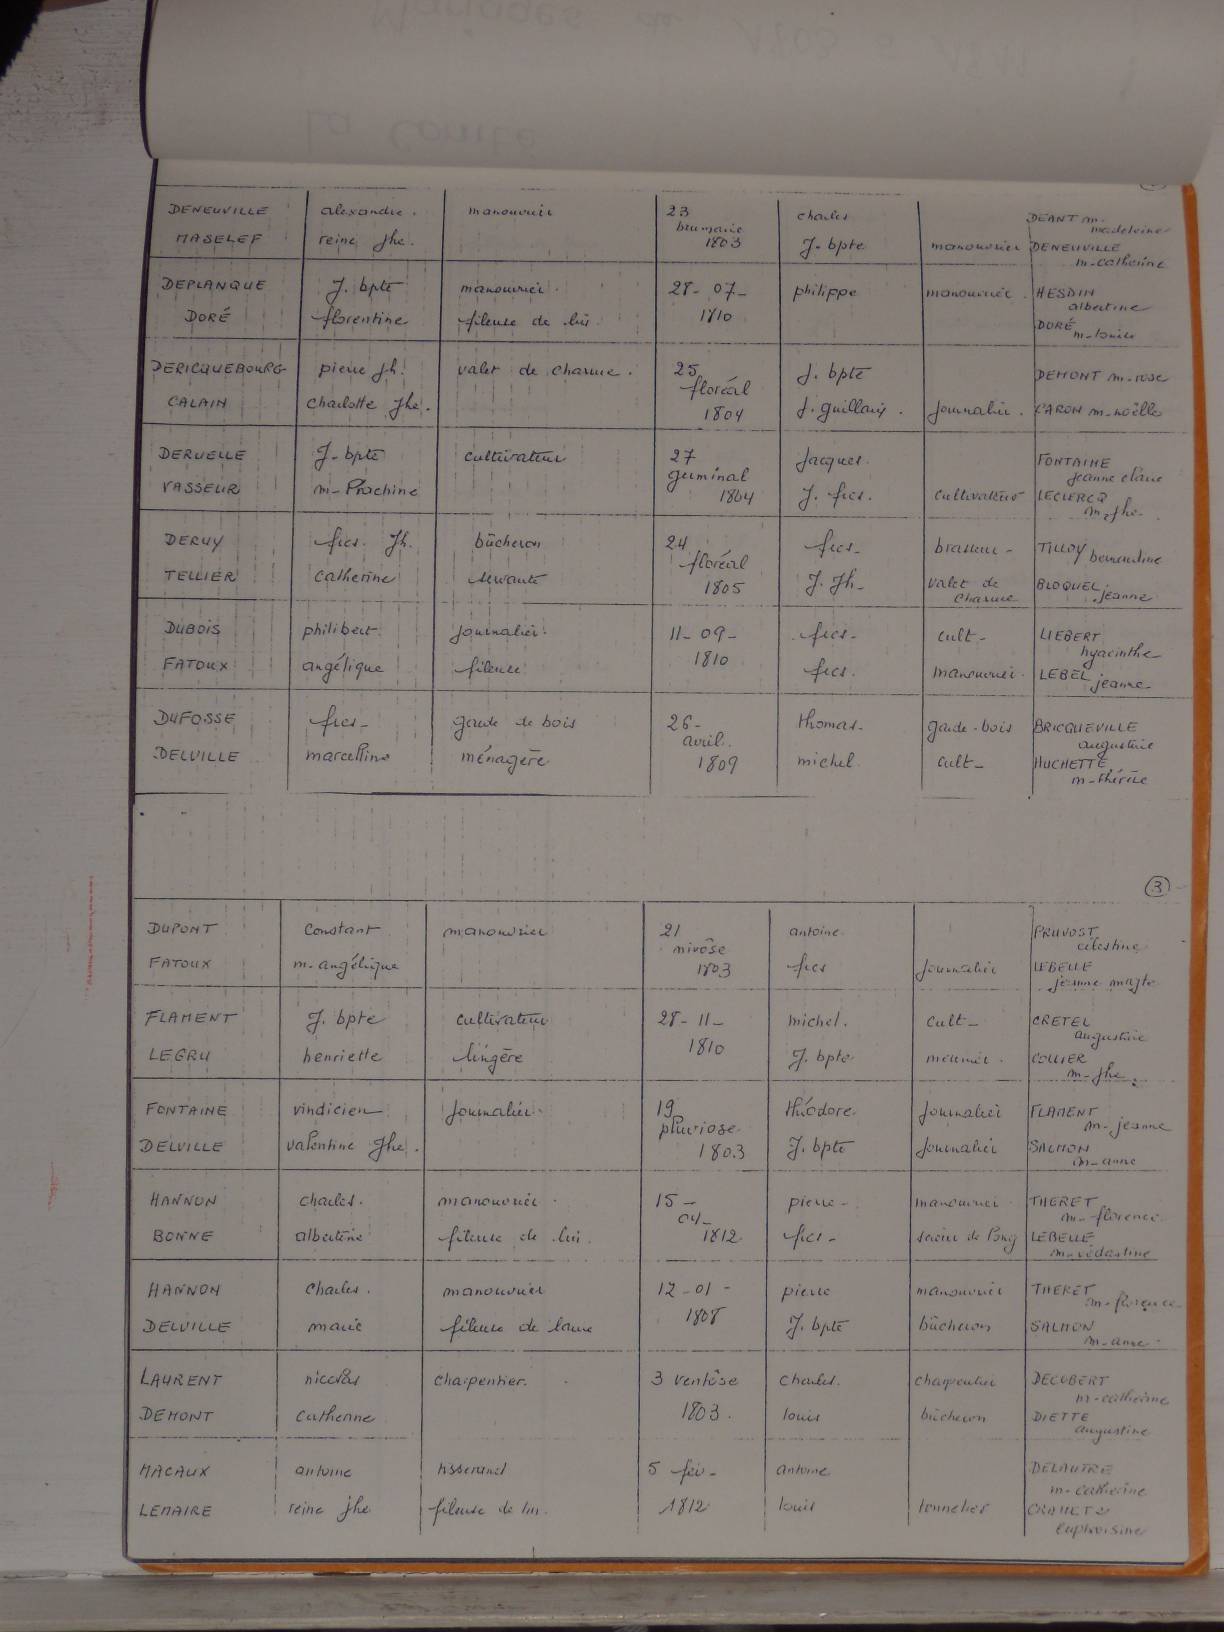 DENEUVILLE alexandre. manouvrier 23 brumaire 1803 charles DEANT m. madeleine
MASELEF reine Jhe. J. bpte manouvrier DENEUVILLE m-catherine
DEPLANQUE J. bpte manouvrier. 28-07-1810 philippe manouvrier. HESDIN albertine
DORÉ florentine fileuse de lin. DORÉ m-louise
DERICQUEBOURG pierre Jh. valet de charrue. 25 floréal 1804 J. bpte DEMONT m-rose
CALAIN charlotte Jhe. J. guillain. journalier. CARON m-noëlle
DERUELLE J-bpte cultivateur 27 germinal 1804 Jacques. FONTAINE jeanne claire
VASSEUR J. fics. cultivateur LECLERCQ m-jhe-
DERUY fics. Jh. bûcheron 24 floréal 1805 fics- brasseur- TILLOY
TELLIER catherine servante J. Jh- valet de charrue BLOQUEL jeanne
DUBOIS philibert. journalier. 11-09-1810 fics- cult- LIEBERT hyacinthe-
FATOUX angélique fileuse fics. manouvrier. LEBEL jeanne-
DUFOSSE fics- garde de bois 26- avril. 1809 thomas. garde-bois BRICQUEVILLE augustine
DELVILLE marcelline ménagère michel cult- HUCHETTE m-thérèse
3
DUPONT constant manouvrier 21 nivôse 1803 antoine PRUVOST célestine
FATOUX m. angélique fics journalier LEBELLE jeanne magte
FLAMENT J. bpte cultivateur 28-11-1810 michel. cult- CRETEL augustine
LEGRU henriette lingère J. bpte meunier. COLLIER m-jhe.
FONTAINE vindicien journalier. 19 pluviose. 1803 théodore. journalier FLAMENT m-jeanne
DELVILLE valentine Jhe. J. bpte journalier SALMON m-anne
HANNON charles. manouvrier. 15-04-1812 pierre- manouvrier THERET m-florence
BONNE albertine fileuse de lin. fics- scieur de long LEBELLE m-védastine
HANNON charles. manouvrier 12-01-1808 pierre manouvrier THERET m-florence-
DELVILLE marie fileuse de laine J. bpte bûcheron SALMON m-anne.
LAURENT nicolas charpentier. 3 ventôse 1803. charles. charpentier DECOBERT m-catherine
DEMONT catherine louis bûcheron DIETTE augustine
MACAUX antoine tisserand 5 fév- 1812 antoine DELAUTRE m-catherine
LEMAIRE reine jhe fileuse de lin. louis tonnelier euphroisine